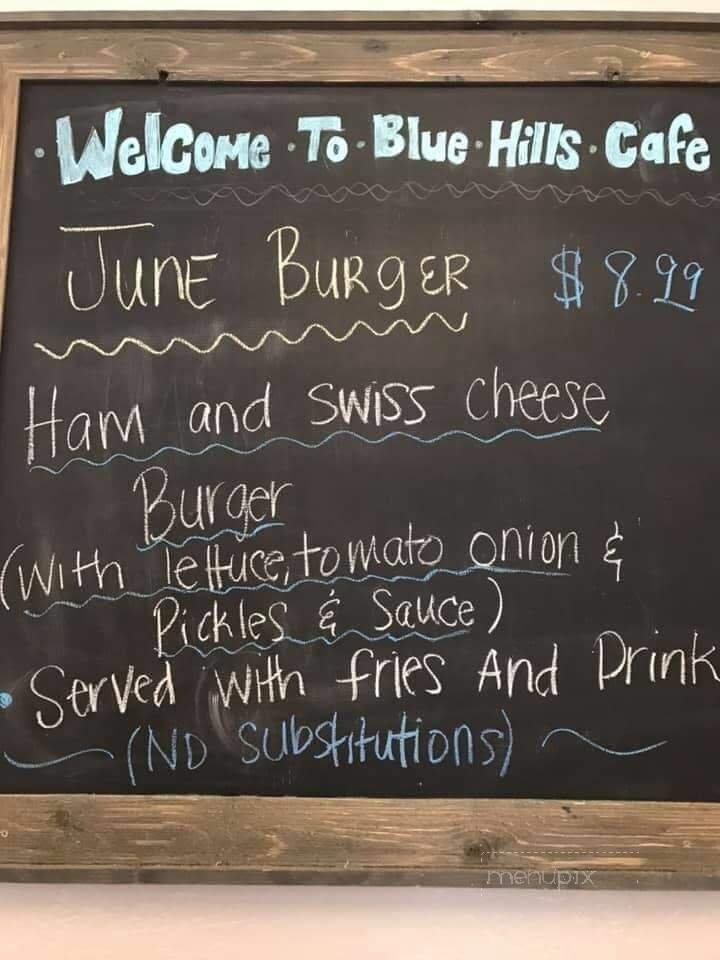 • Welcome • To • Blue • Hills • Cafe
June Burger $8.99
Ham and swiss cheese
Burger
(with lettuce, tomato onion &
Pickles & Sauce)
• Served with fries And Drink
(No substitutions)
menupix